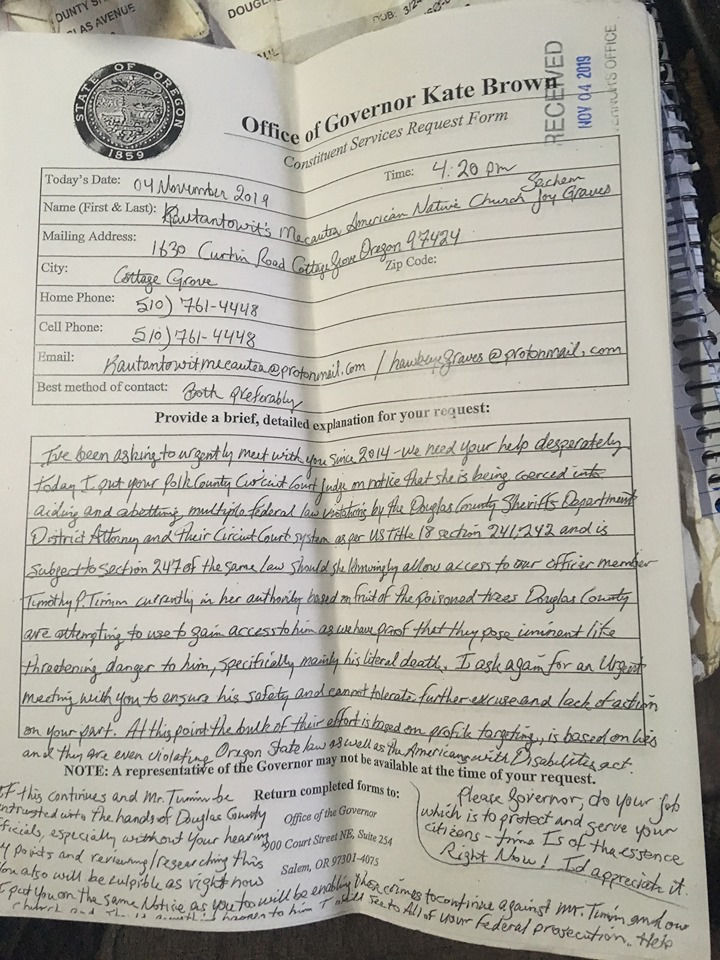 OUNTY SH
LAS AVENUE
DOUGL
DOB: 3/2
STATE OF OREGON
1859
Office of Governor Kate Brown
Constituent Services Request Form
RECEIVED
NOV 04 2019
ERNOR'S OFFICE
Today's Date: 04 November 2019 Time: 4:20 pm
Name (First & Last): Kautantowit's Mecautea American Native Church Sachem Joy Graves
Mailing Address: 1630 Curtin Road Cottage Grove Oregon 97424
City: Cottage Grove Zip Code:
Home Phone: 510) 761-4448
Cell Phone: 510) 761-4448
Email: Kautantowitmecautea@protonmail.com / hawkeyegraves@protonmail.com
Best method of contact: Both preferably
Provide a brief, detailed explanation for your request:
I've been asking to urgently meet with you since 2014 - we need your help desperately
Today I put your Polk County Circuit Court Judge on notice that she is being coerced into
aiding and abetting, multiple federal law violations by the Douglas County Sheriffs Department
District Attorney and Their Circuit Court system as per US Title 18 section 241,242 and is
subject to section 247 of the same law should she knowingly allow access to our officer member
Timothy P. Timm currently in her authority based on fruit of the poisoned trees Douglas County
are attempting to use to gain access to him as we have proof that they pose iminent life
threatening danger to him, specifically mainly his literal death. I ask again for an Urgent
meeting with you to ensure his safety and cannot tolerate further excuse and lack of action
on your part. At this point the bulk of their effort is based on profile targeting, is based on lies
and they are even violating Oregon State law as well as the Americans with Disabilities act.
NOTE: A representative of the Governor may not be available at the time of your request.
Return completed forms to:
Office of the Governor
900 Court Street NE, Suite 254
Salem, OR 97301-4075
If this continues and Mr. Timm be
entrusted into the hands of Douglas County
ficials, especially without your hearing
y points and reviewing/researching this
you also will be culpible as right now
I put you on the same Notice as you too will be enabling these crimes to continue against Mr. Timm and our
church and happen to him I will see to All of your Federal prosecution. Help
Please Governor, do your job
which is to protect and serve your
citizens - time Is of the essence
Right Now! I'd appreciate it.